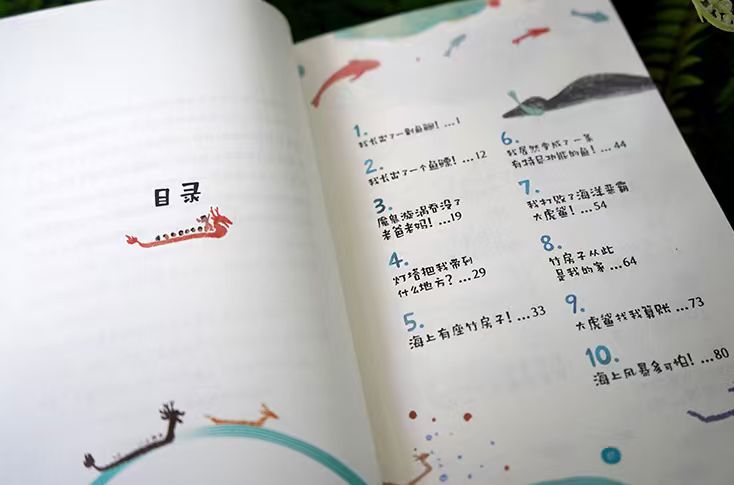 目录
1.
我长出了一副鱼鳃！...1
2.
我长出了一个鱼鳔！...12
3.
魔鬼漩涡吞没了
老爸老妈！...19
4.
灯塔把我带到
什么地方？...29
5.
海上有座竹房子！...33
6.
我居然变成了一条
有特异功能的鱼！...44
7.
我打败了海洋恶霸
大虎鲨！...54
8.
竹房子从此
是我的家...64
9.
大虎鲨找我算账...73
10.
海上风暴多可怕！...80